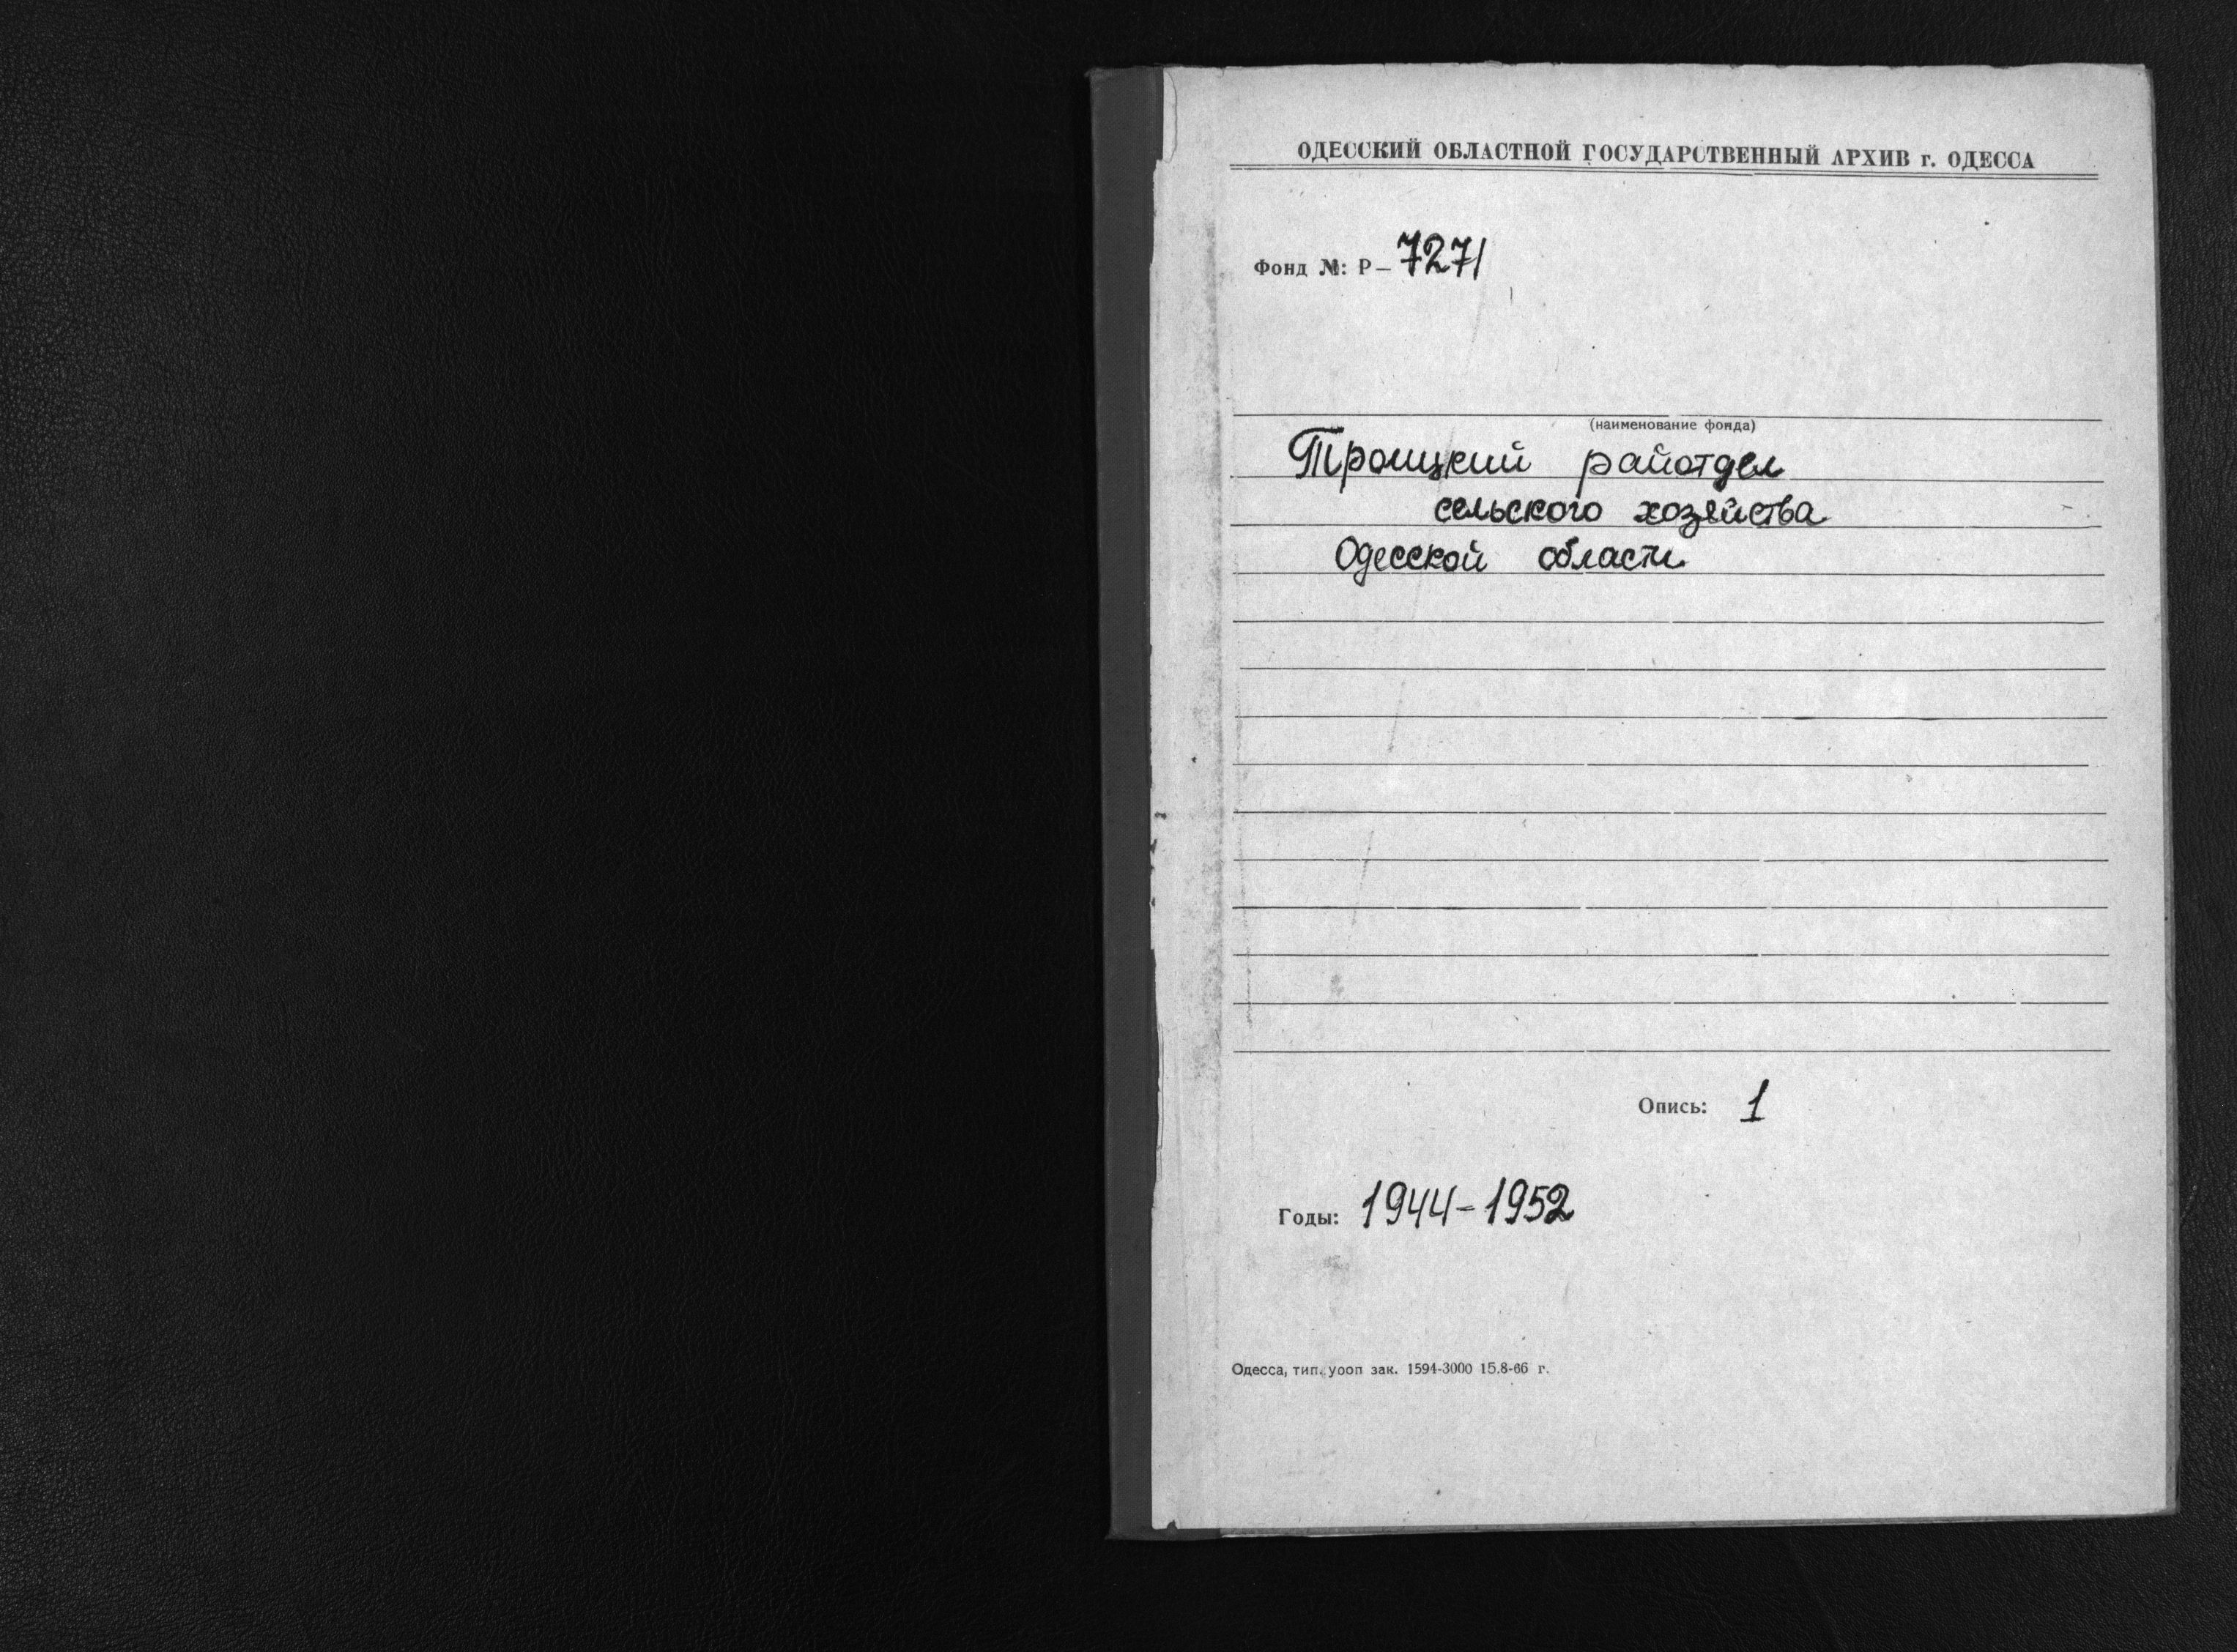 ОДЕССКИЙ ОБЛАСТНОЙ ГОСУДАРСТВЕННЫЙ АРХИВ г. ОДЕССА
Фонд №: Р— 7271
(наименование фонда)
Троицкий райотдел
сельского хозяйства
Одесской области
Опись: 1
Годы: 1944-1952
Одесса, тип. уооп зак. 1594-3000 15.8-66 г.